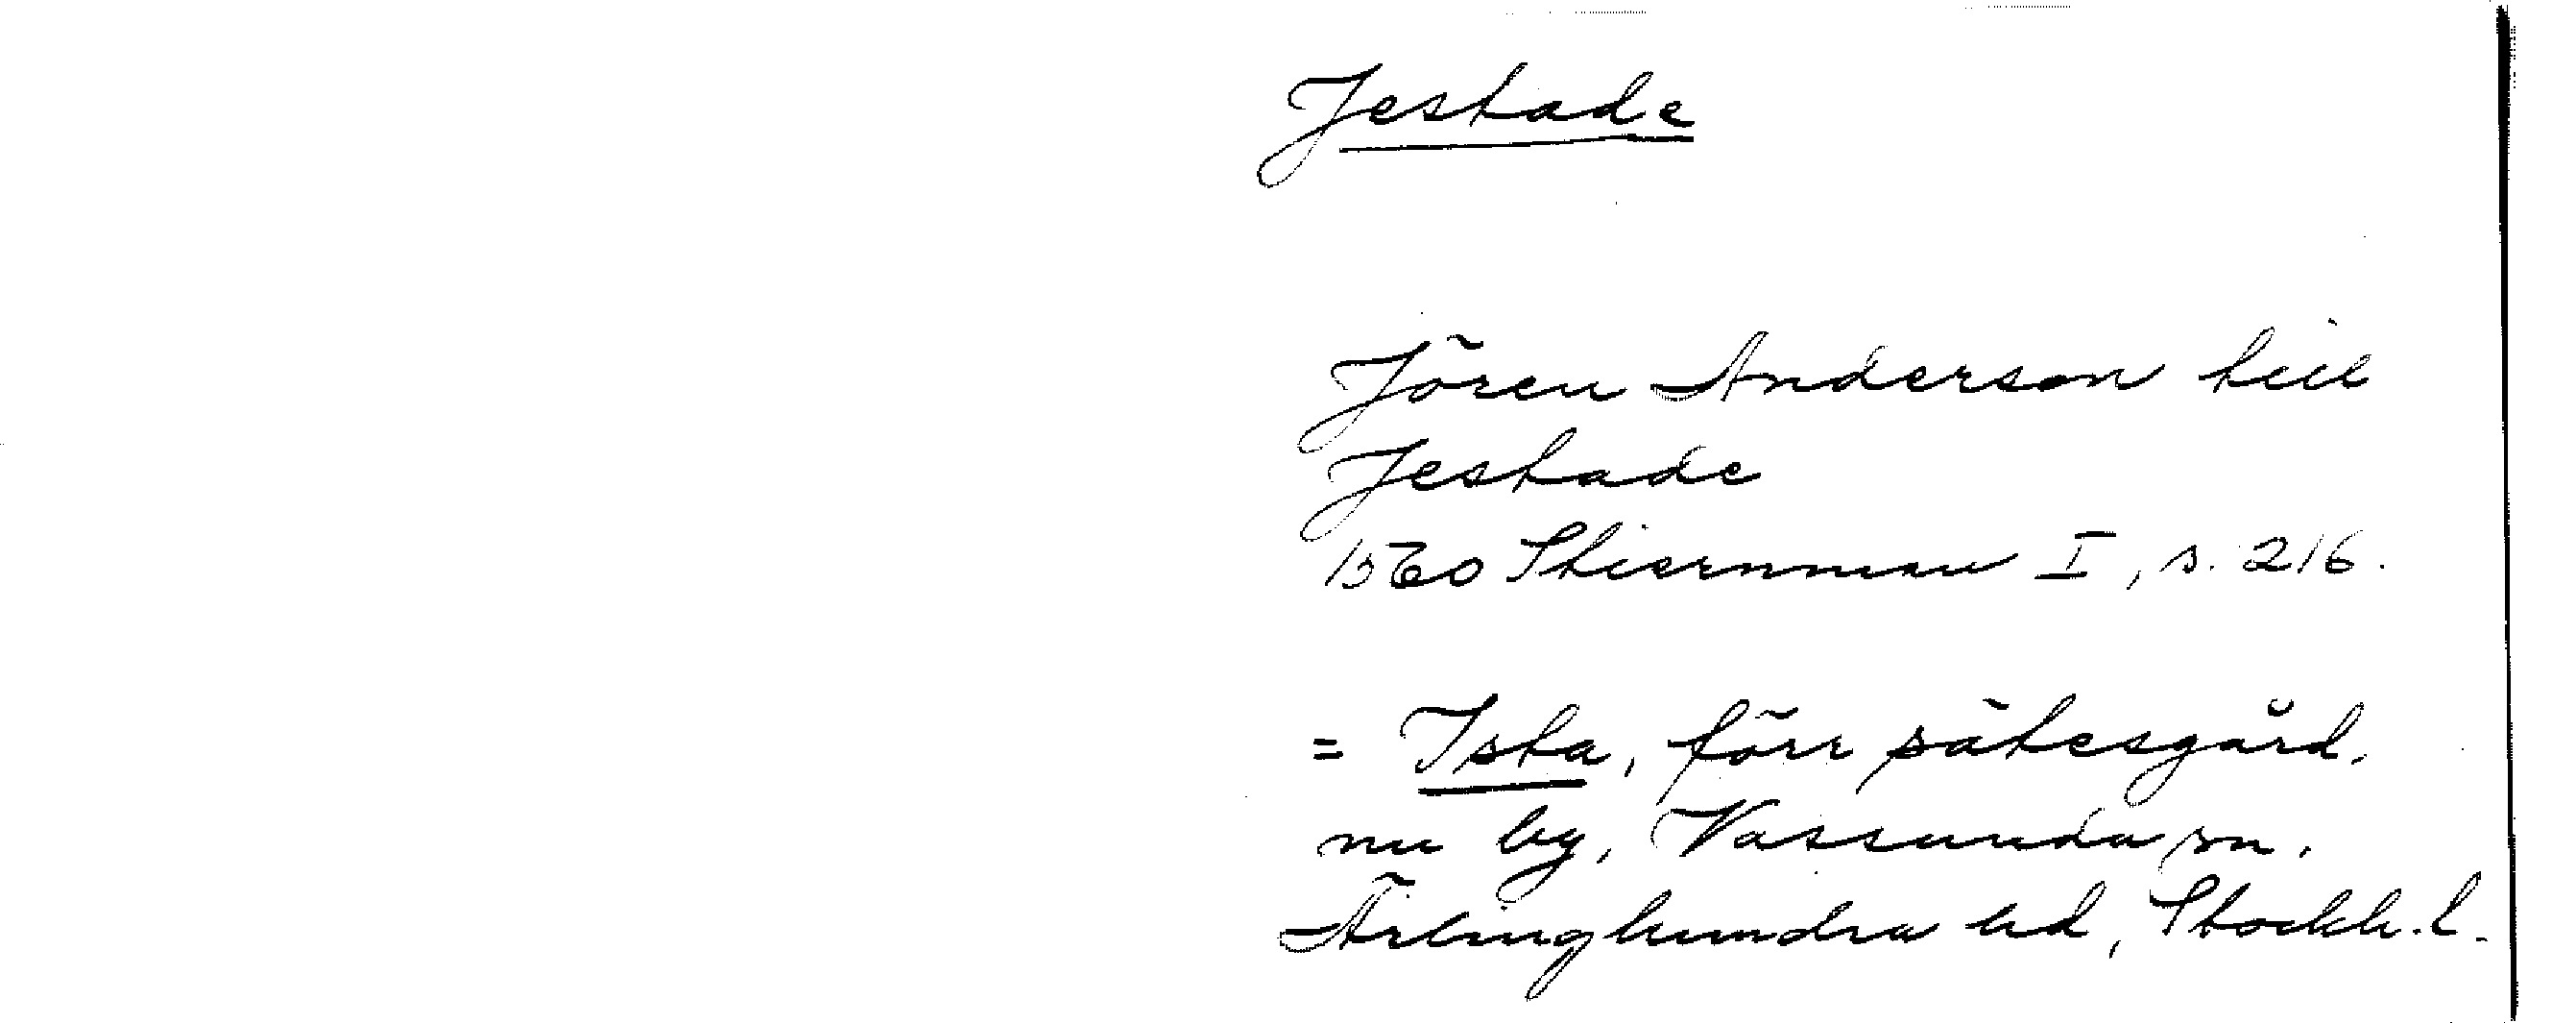 Jestade
Jören Anderson till
Jestade
1560 Stiernman I, s. 216.
= Ista, förr sätesgård,
nu by, Vassunda sn.
Ärlinghundra hd, Stockh. l.